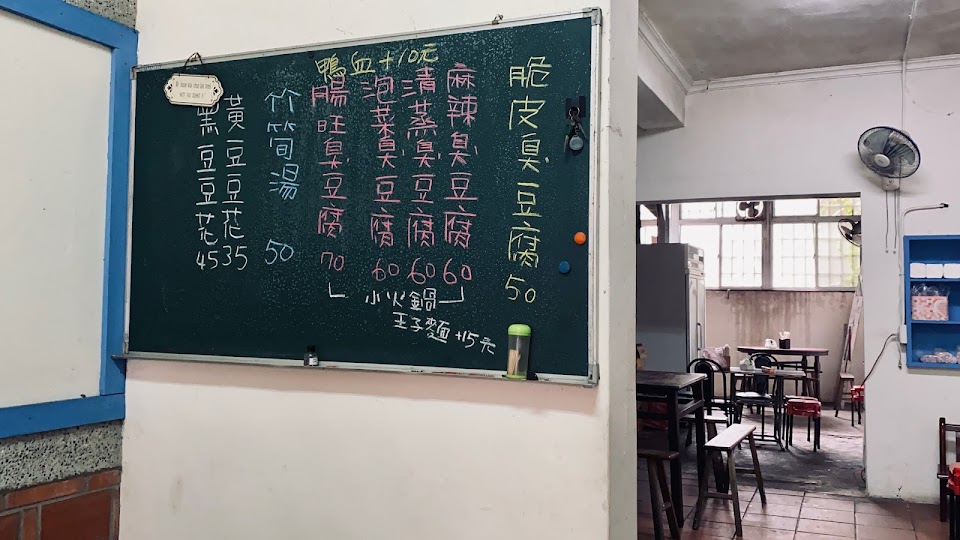 脆皮臭豆腐 50
鴨血+10元
麻辣臭豆腐 60
清蒸臭豆腐 60
泡菜臭豆腐 60
腸旺臭豆腐 70
小火鍋
王子麵+15元
竹筍湯 50
黃豆豆花 35
黑豆豆花 45